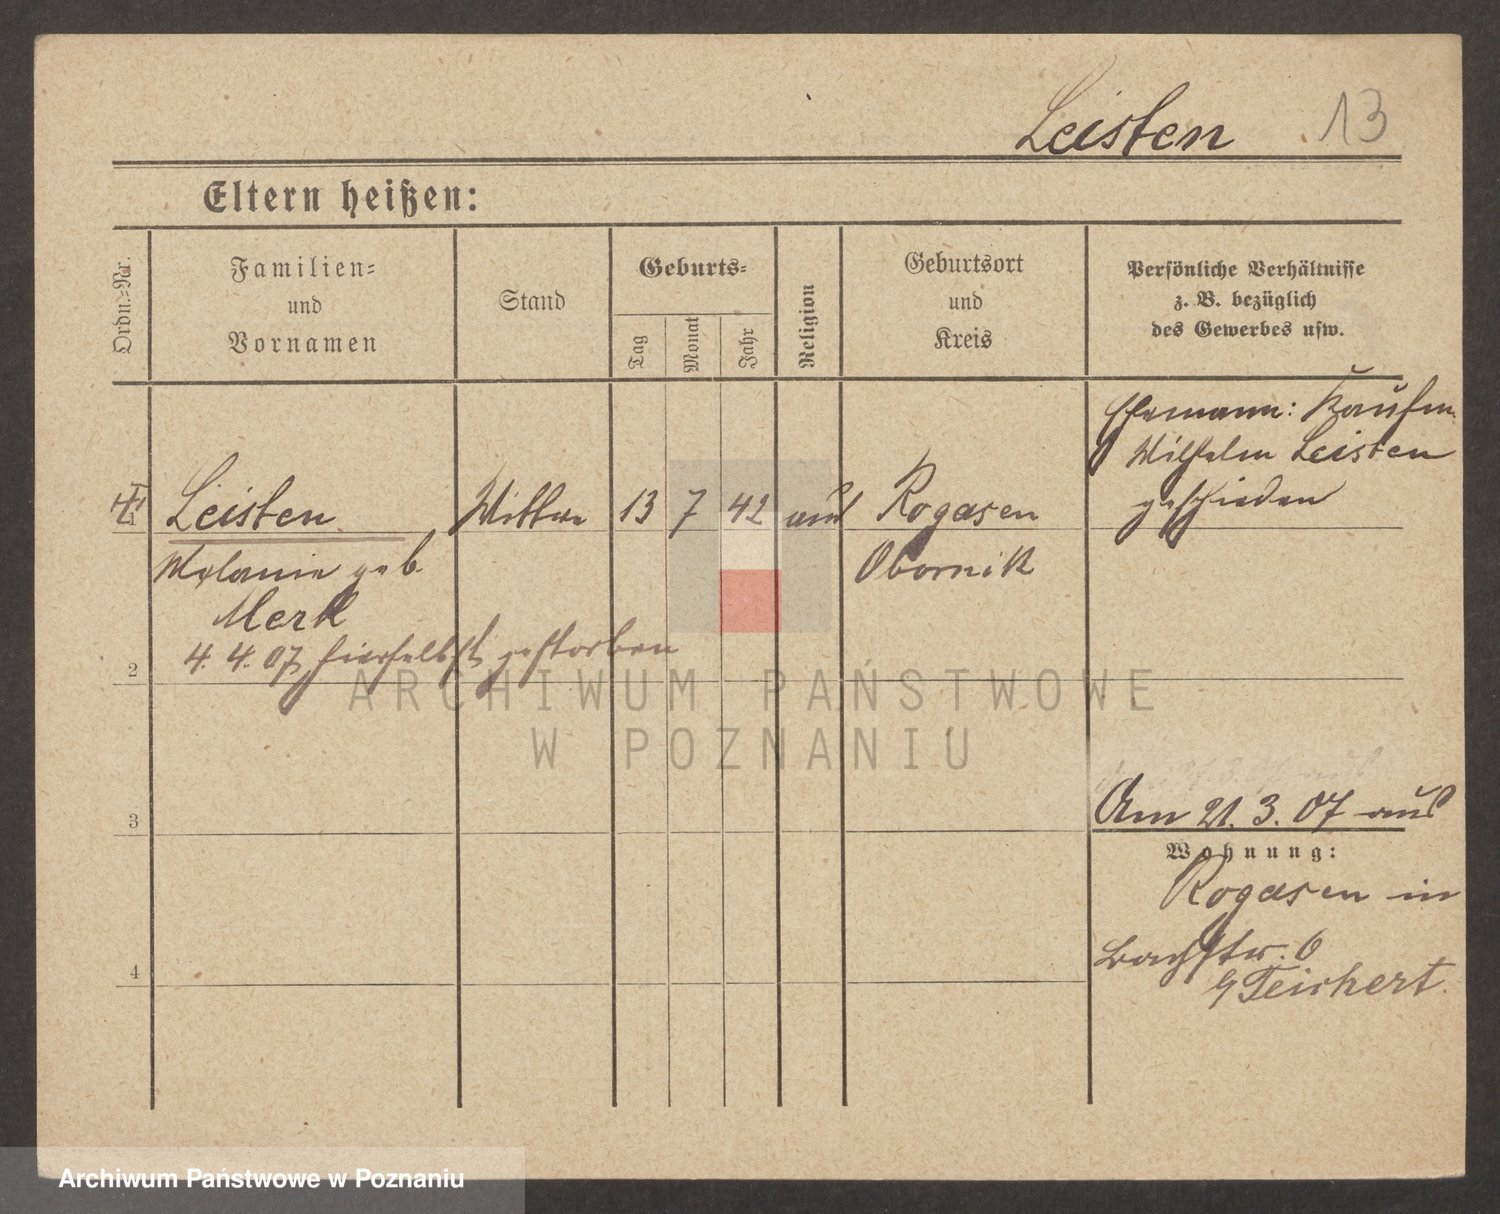 Leisten 13
Eltern heißen:
Ordn.-Nr.
Familien-
und
Vornamen
Stand
Geburts-
Tag
Monat
Jahr
Religion
Geburtsort
und
Kreis
Persönliche Verhältnisse
z. B. bezüglich
des Gewerbes usw.
Ehemann: Kaufm.
Wilhelm Leisten
geschieden
Leisten Wittwe 13 7 42 Rogasen
Melanie geb. Obornik
Merk
4. 4. 07 hierselbst gestorben
2
ARCHIWUM PAŃSTWOWE
W POZNANIU
Am 21. 3. 07 aus
3
Wohnung:
Rogasen in
Bachstr. 6
4
Teichert.
Archiwum Państwowe w Poznaniu